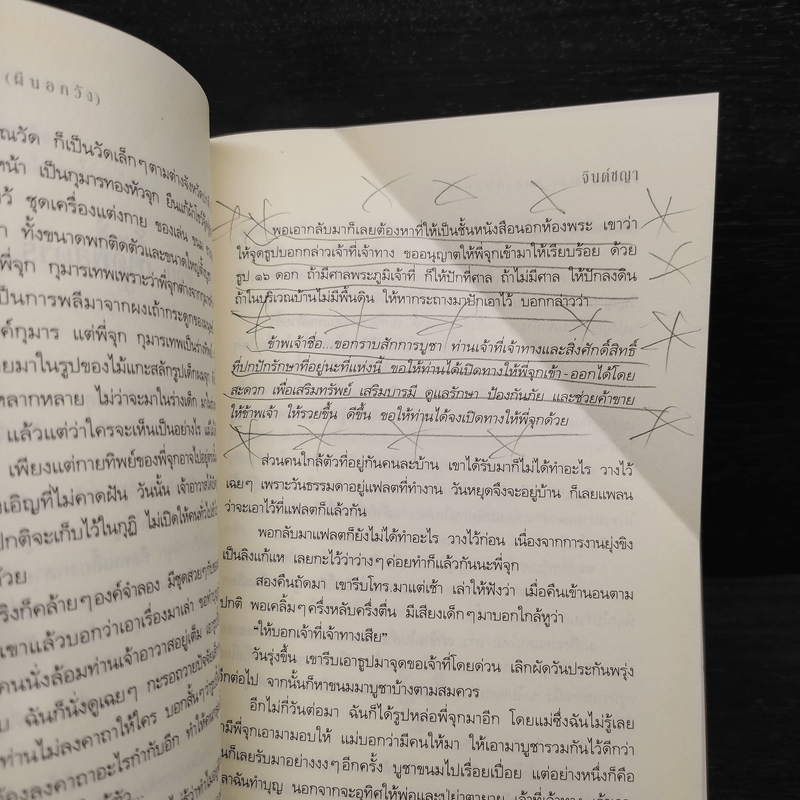 (ผีบอกวัง)
ณวัด ก็เป็นวัดเล็กๆตามต่างจังหวัด
หน้า เป็นกุมารทองหัวจุก
ชุดเครื่องแต่งกาย ของเล่น ขนม
ทั้งขนาดพกติดตัวและขนาดใหญ่
พี่จุก กุมารเทพเพราะว่าพี่จุกต่างจาก
เป็นการพลีมาจากผงเถ้ากระดูกของ
ค์กุมาร แต่พี่จุก กุมารเทพเป็นร่างทิพย์
ยมาในรูปของไม้แกะสลักรูปเด็กผมจุก
หลากหลาย ไม่ว่าจะมาในร่างเด็ก
แล้วแต่ว่าใครจะเห็นเป็นอย่างไร
เพียงแต่กายทิพย์ของพี่จุกอาจไป
งเอิญที่ไม่คาดฝัน วันนั้น เจ้าอาวาส
ปกติจะเก็บไว้ในกุฏิ ไม่เปิดให้คน
ด้วย
ริงก็คล้ายๆองค์จำลอง มีชุดสวยๆ
เขาแล้วบอกว่าเอาเรื่องมาเล่า
คนนั่งล้อมท่านเจ้าอาวาสอยู่เต็ม
ฉันก็นั่งดูเฉยๆ กะรอถวายปัจจัย
ท่านไม่ลงคาถาให้ใคร บอกสั้นๆว่า
ต้องลงคาถาอะไรกำกับอีก
จินต์ชญา
พอเอากลับมาก็เลยต้องหาที่ให้เป็นชั้นหนังสือนอกห้องพระ เขาว่า
ให้จุดธูปบอกกล่าวเจ้าที่เจ้าทาง ขออนุญาตให้พี่จุกเข้ามาให้เรียบร้อย ด้วย
ธูป ๑๖ ดอก ถ้ามีศาลพระภูมิเจ้าที่ ก็ให้ปักที่ศาล ถ้าไม่มีศาล ให้ปักลงดิน
ถ้าในบริเวณบ้านไม่มีพื้นดิน ให้หากระถางมาปักเอาไว้ บอกกล่าวว่า
ข้าพเจ้าชื่อ...ขอกราบสักการบูชา ท่านเจ้าที่เจ้าทางและสิ่งศักดิ์สิทธิ์
ที่ปกปักรักษาที่อยู่นะที่แห่งนี้ ขอให้ท่านได้เปิดทางให้พี่จุกเข้า-ออกได้โดย
สะดวก เพื่อเสริมทรัพย์ เสริมบารมี ดูแลรักษา ป้องกันภัย และช่วยค้าขาย
ให้ข้าพเจ้า ให้รวยขึ้น ดีขึ้น ขอให้ท่านได้จงเปิดทางให้พี่จุกด้วย
ส่วนคนใกล้ตัวที่อยู่กันคนละบ้าน เขาได้รับมาก็ไม่ได้ทำอะไร วางไว้
เฉยๆ เพราะวันธรรมดาอยู่แฟลตที่ทำงาน วันหยุดจึงจะอยู่บ้าน ก็เลยแพลน
ว่าจะเอาไว้ที่แฟลตก็แล้วกัน
พอกลับมาแฟลตก็ยังไม่ได้ทำอะไร วางไว้ก่อน เนื่องจากการงานยุ่งขิง
เป็นลิงแก้แห เลยกะไว้ว่าว่างๆค่อยทำก็แล้วกันนะพี่จุก
สองคืนถัดมา เขารีบโทร.มาแต่เช้า เล่าให้ฟังว่า เมื่อคืนเข้านอนตาม
ปกติ พอเคลิ้มๆครึ่งหลับครึ่งตื่น มีเสียงเด็กๆมาบอกใกล้หูว่า
“ให้บอกเจ้าที่เจ้าทางเสีย”
วันรุ่งขึ้น เขารีบเอาธูปมาจุดขอเจ้าที่โดยด่วน เลิกผัดวันประกันพรุ่ง
อีกต่อไป จากนั้นก็หาขนมมาบูชาบ้างตามสมควร
อีกไม่กี่วันต่อมา ฉันก็ได้รูปหล่อพี่จุกมาอีก โดยแม่ซึ่งฉันไม่รู้เลย
ามีพี่จุกเอามามอบให้ แม่บอกว่ามีคนให้มา ให้เอามาบูชารวมกันไว้ดีกว่า
นก็เลยรับมาอย่างงงๆอีกครั้ง บูชาขนมไปเรื่อยเปื่อย แต่อย่างหนึ่งก็คือ
ลาฉันทำบุญ นอกจากจะอุทิศให้พ่อและปู่ย่าตายาย เจ้าที่เจ้าทาง